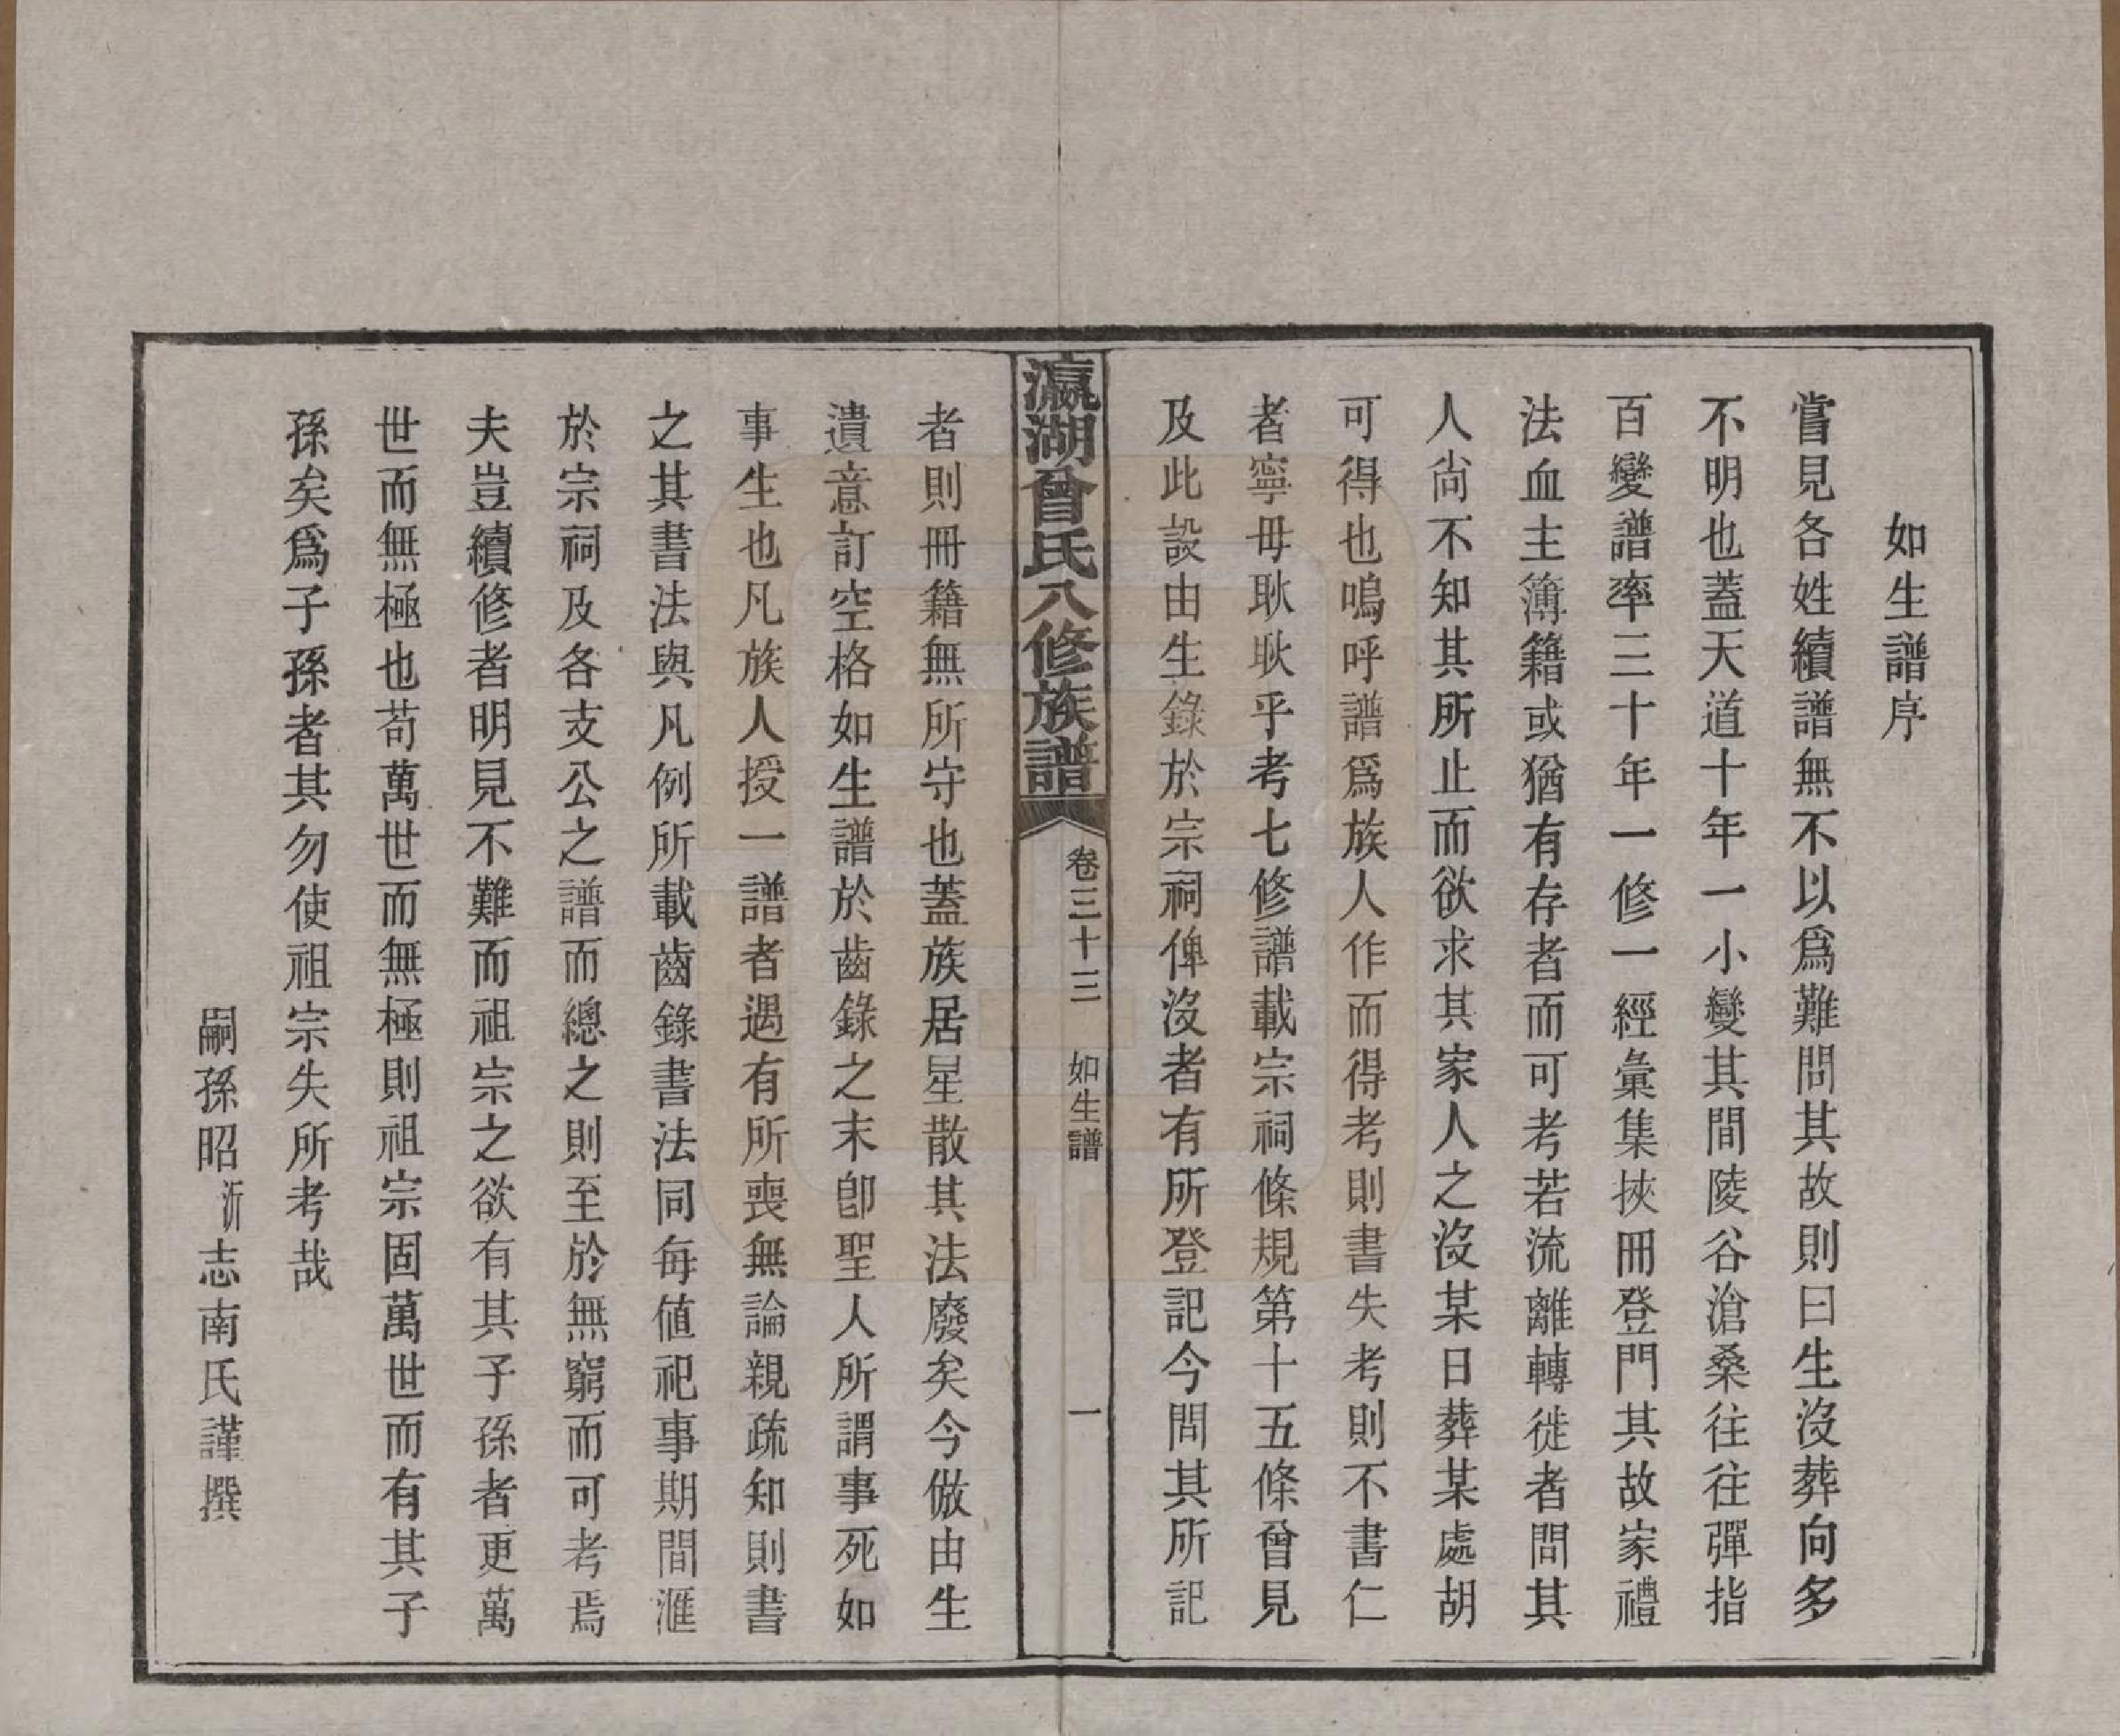 如生譜序
嘗見各姓續譜無不以爲難問其故則曰生沒葬向多
不明也蓋天道十年一小變其間陵谷滄桑往往彈指
百變譜率三十年一修一經彙集挾冊登門其故家禮
法血主簿籍或猶有存者而可考若流離轉徙者問其
人尙不知其所止而欲求其家人之沒某日葬某處胡
可得也嗚呼譜爲族人作而得考則書失考則不書仁
者寧毋耿耿乎考七修譜載宗祠條規第十五條曾見
及此設由生錄於宗祠俾沒者有所登記今問其所記
瀛湖曾氏八修族譜
卷三十三
如生譜
一
者則冊籍無所守也蓋族居星散其法廢矣今倣由生
遺意訂空格如生譜於齒錄之末卽聖人所謂事死如
事生也凡族人授一譜者遇有所喪無論親疏知則書
之其書法與凡例所載齒錄書法同每値祀事期間滙
於宗祠及各支公之譜而總之則至於無窮而可考焉
夫豈續修者明見不難而祖宗之欲有其子孫者更萬
世而無極也苟萬世而無極則祖宗固萬世而有其子
孫矣爲子孫者其勿使祖宗失所考哉
嗣孫昭沂志南氏謹撰